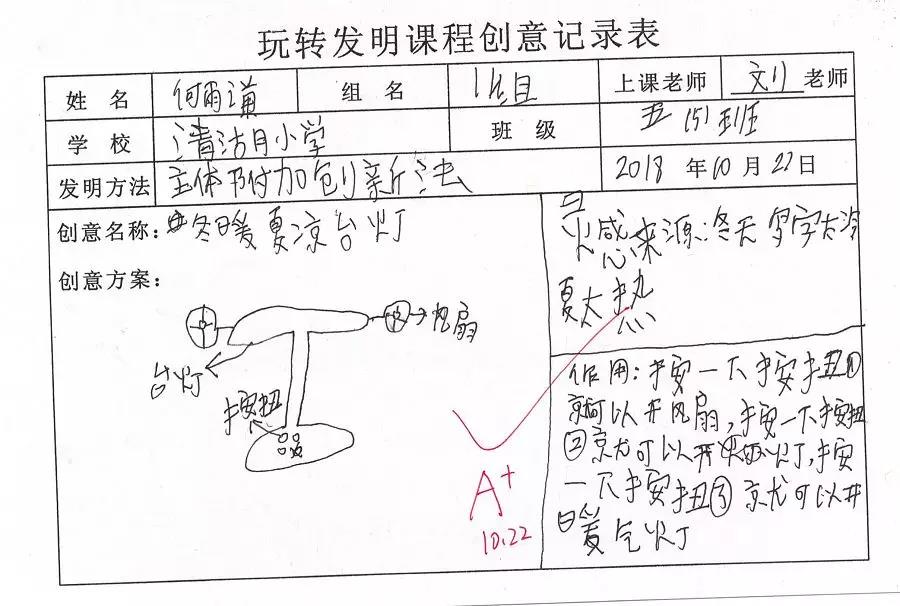 玩转发明课程创意记录表
姓 名 何雨谦 组 名 上课老师 刘 老师
学 校 清洁月小学 班 级 五(5)班
发明方法 主体附加创新法 2018 年 10 月 22 日
创意名称: 冬暖夏凉台灯
创意方案:
灵感来源:冬天写字太冷
夏太热
风扇
台灯
按扭
作用:按一下按扭①
就可以开风扇,按一下按扭
②就可以开灯,按
一下按扭③就可以开
暖气灯
A+
10.22